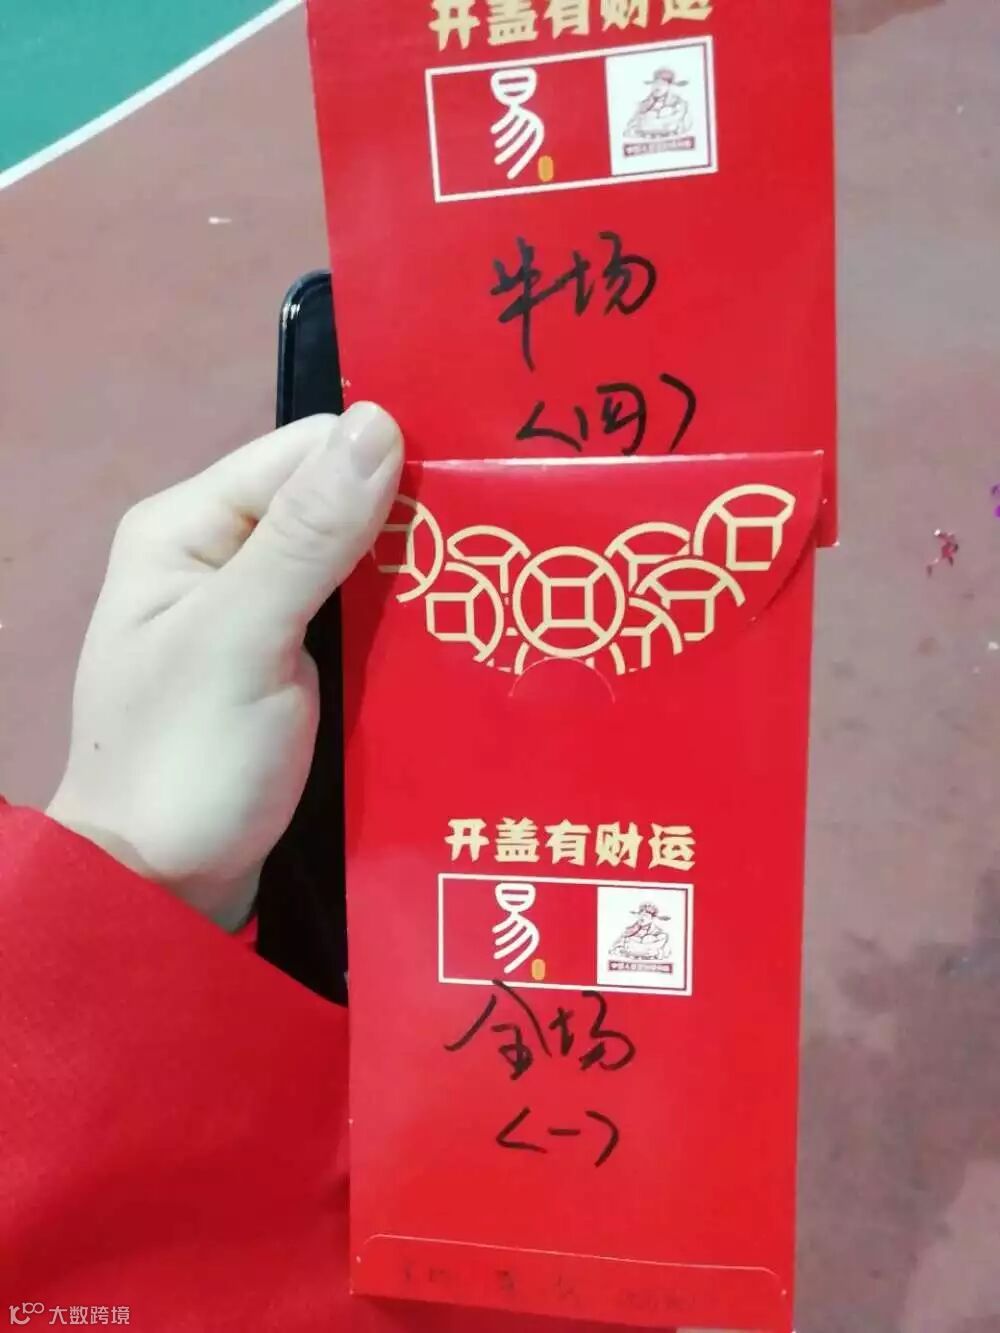 开盖有财运
易
半场
<四>
开盖有财运
易
全场
<一>
大数跨境